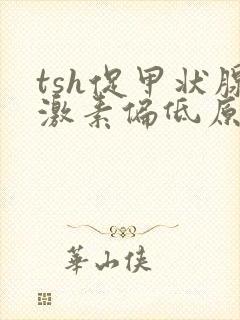 tsh促甲状腺
激素偏低原
華山俠